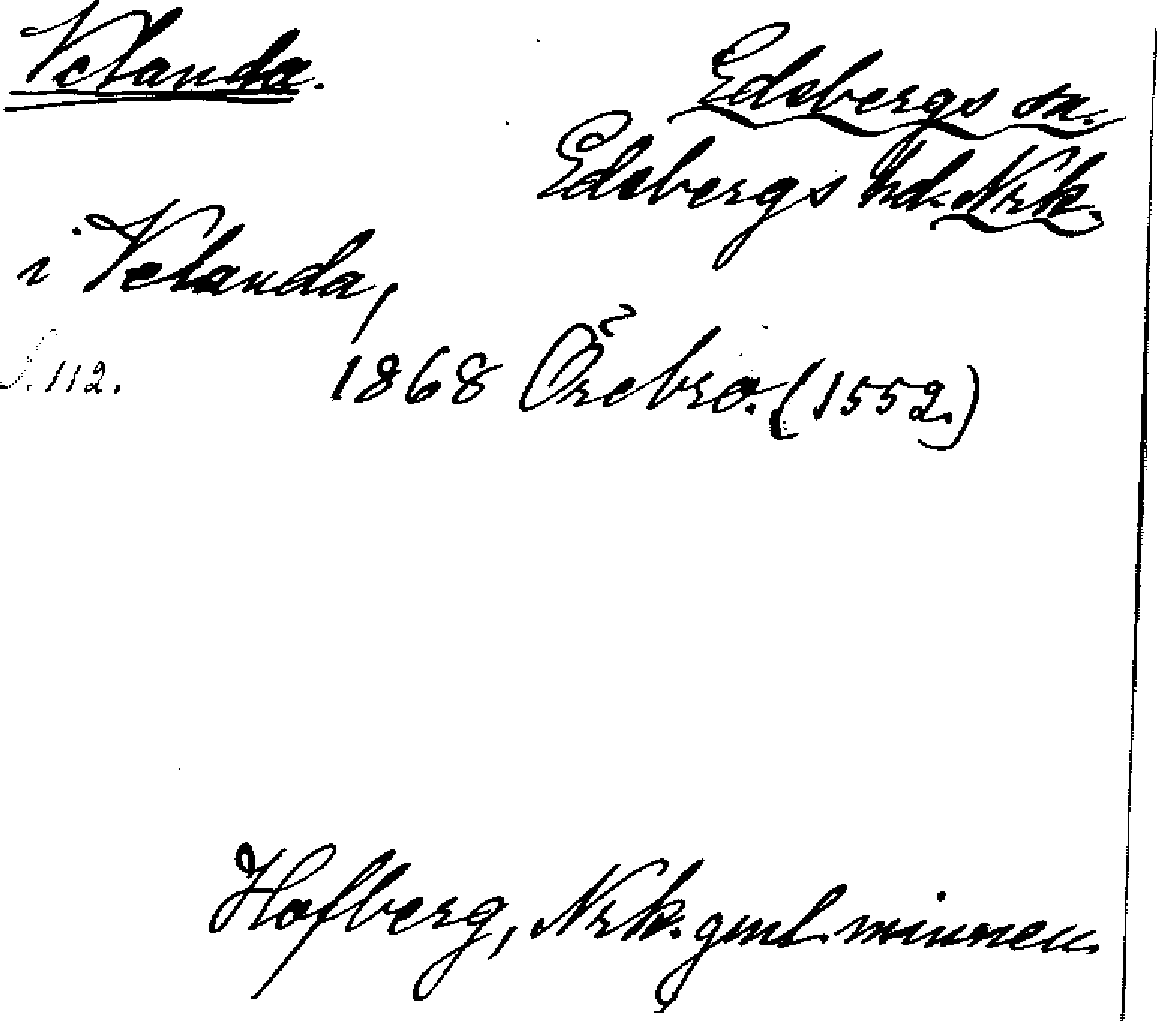 Velanda.
Edsbergs sn.
Edsbergs hd. Nrk.
i Velanda,
S. 112. 1868 Örebro. (1552.)
Hofberg, Nrk. gml. minnen.